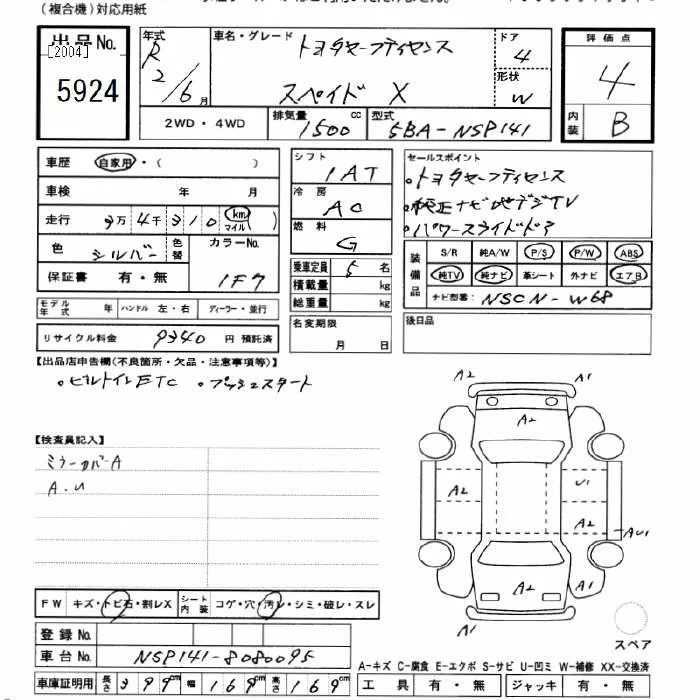 (複合機)対応用紙
出品No.
[2004]
5924
年式 R2/6月
車名・グレード トヨタセーフティセンス
スペイド X
ドア 4
形状 W
評価点 4
内装 B
2WD・4WD
排気量 1500 cc
型式 5BA-NSP141
車歴 自家用・( )
車検 年 月
走行 3万4千310 km マイル
色 シルバー 色替
カラーNo. 1F7
保証書 有・無
シフト 1AT
冷房 AC
燃料 G
乗車定員 5名
積載量 kg
総重量 kg
セールスポイント
・トヨタセーフティセンス
・純正ナビ地デジTV
・パワースライドドア
装備品 S/R 純A/W P/S P/W ABS
純TV 純ナビ 革シート 外ナビ エアB
ナビ型番: NSCN-W68
モデル年式 年 ハンドル 左・右 ディーラー・並行
名変期限 月 日
後日品
リサイクル料金 9340 円 預託済
【出品店申告欄(不良箇所・欠品・注意事項等)】
・ビルトインETC ・プッシュスタート
【検査員記入】
ミラーカバーA
A.U
A2 A1
A2
A2 U1
A2 AU1
A2 A1
A1
FW キズ・トビ石・割レX シート内装 コゲ・穴・汚レ・シミ・破レ・スレ
スペア
登録No.
車台No. NSP141-8080095
A-キズ C-腐食 E-エクボ S-サビ U-凹ミ W-補修 XX-交換済
車庫証明用 長さ 399cm 幅 169cm 高さ 169cm
工具 有・無 ジャッキ 有・無